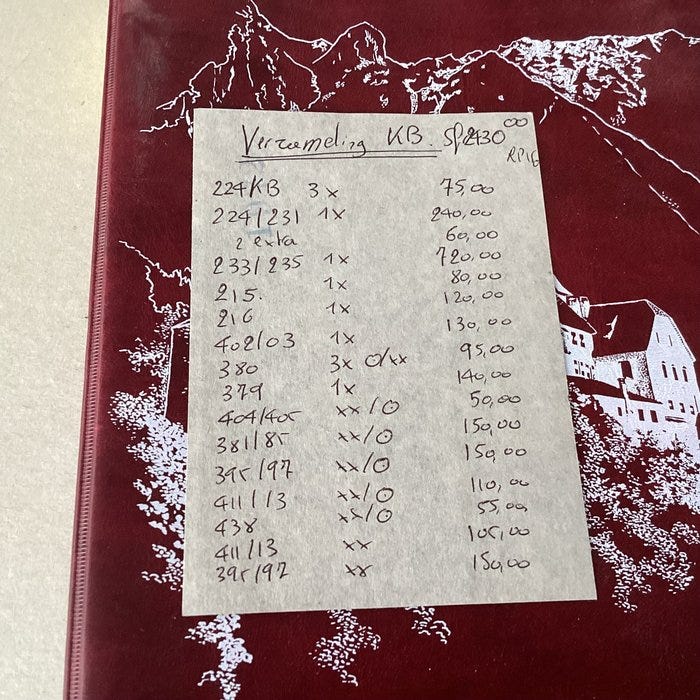 Verzameling KB. Sp 2430 00
RP16
224KB 3x 75,00
224/231 1x 240,00
2 extra 60,00
233/235 1x 720,00
215. 1x 80,00
216 1x 120,00
402/03 1x 130,00
380 3x O/xx 95,00
379 1x 140,00
404/405 xx/O 50,00
381/85 xx/O 150,00
395/97 xx/O 150,00
411/13 xx/O 110,00
438 xx/O 55,00
411/13 xx 105,00
395/97 xx 150,00